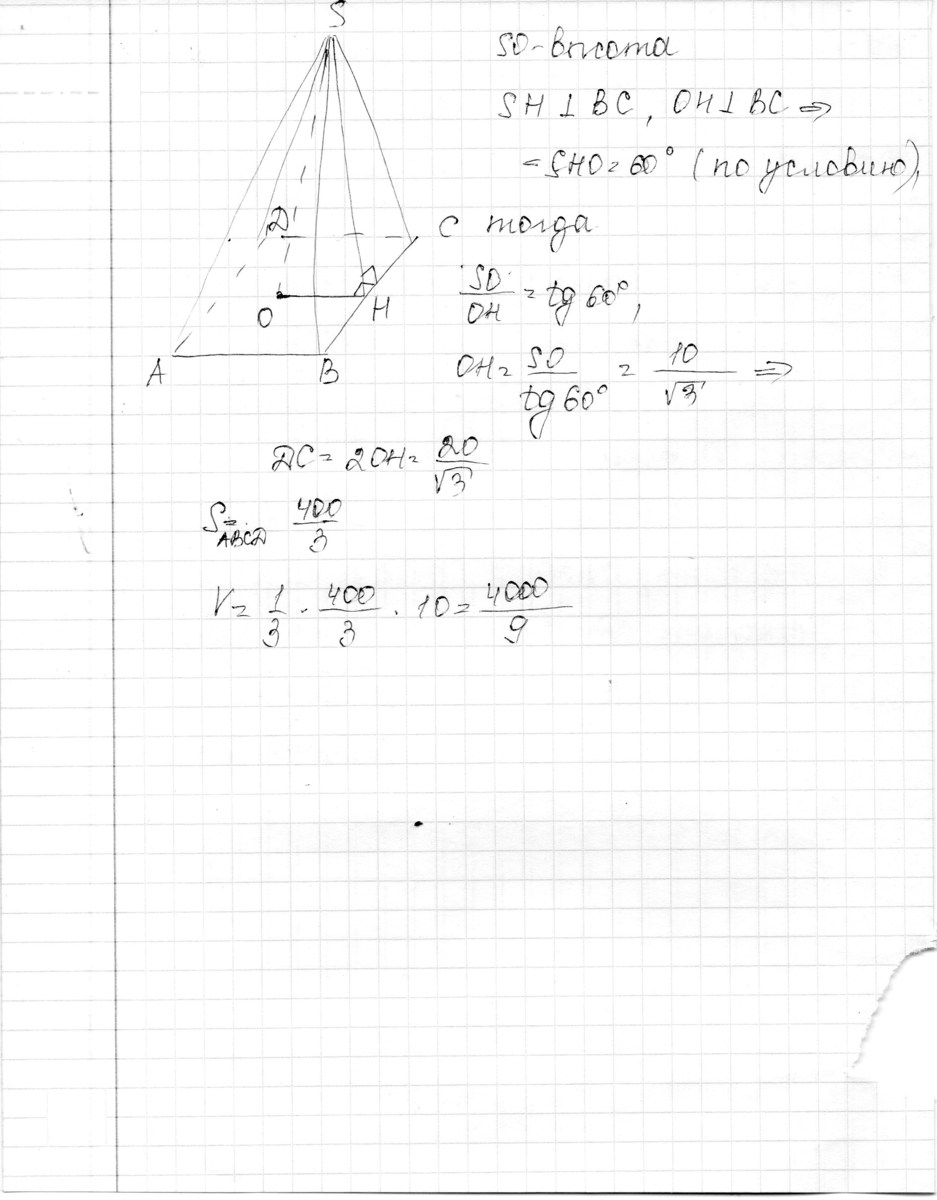 S
SO-высота
SH⊥BC, OH⊥BC ⇒
∠SHO=60° (по условию),
D
C
тогда
SO/OH = tg 60°,
O
H
A
B
OH = SO/tg 60° = 10/√3 ⇒
DC = 2OH = 20/√3
S_ABCD = 400/3
V = 1/3 · 400/3 · 10 = 4000/9